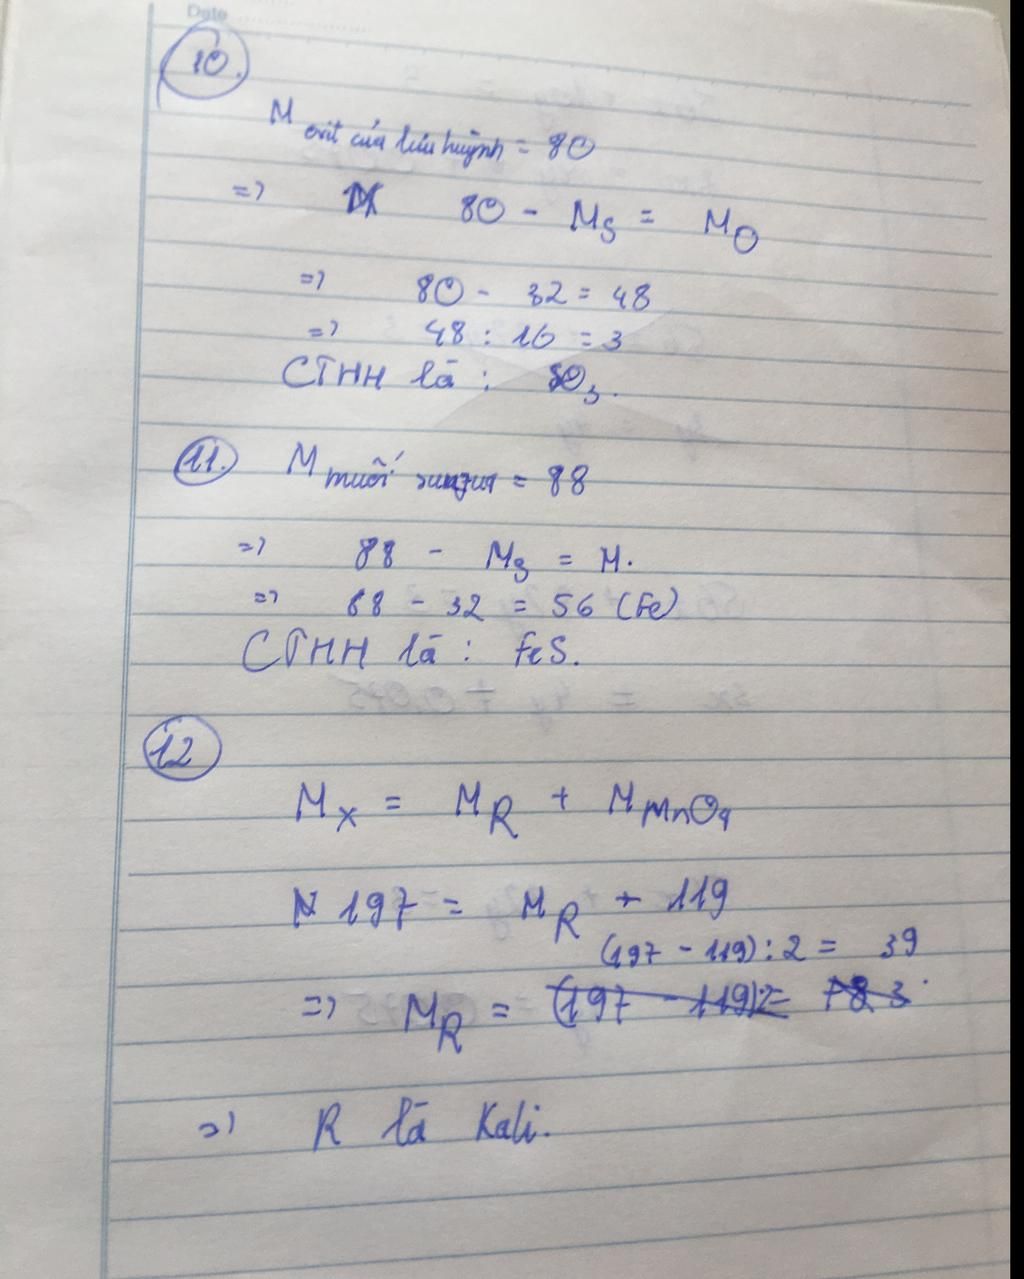 Date
10.
M oxit của lưu huỳnh = 80
=> 80 - MS = MO
=> 80 - 32 = 48
=> 48 : 16 = 3
CTHH là : SO3.
11. M muối sunfua = 88
=> 88 - MS = M.
=> 88 - 32 = 56 (Fe)
CTHH là : FeS.
12
MX = MR + MMnO4
197 = MR + 119
(197 - 119) : 2 = 39
=> MR = (197 - 119)2 =
=> R là Kali.